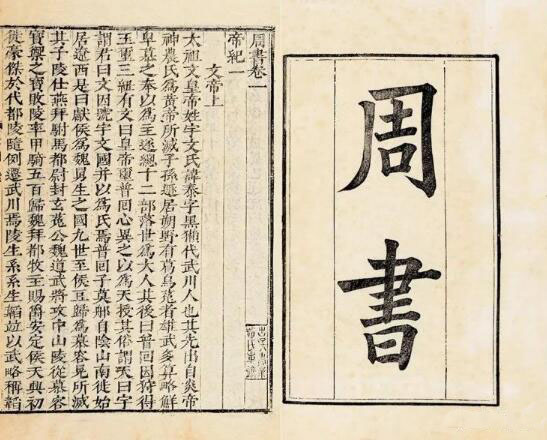 周書
周書卷一
帝紀一
文帝上
太祖文皇帝姓宇文氏諱泰字黑獺代武川人也其先出自炎帝
神農氏爲黃帝所滅子孫遯居朔野有葛烏菟者雄武多算略鮮
卑慕之奉以爲主遂總十二部落世爲大人其後曰普回因狩得
玉璽三紐有文曰皇帝璽普回心異之以爲天授其俗謂天曰宇
謂君曰文因號宇文國并以爲氏焉普回子莫那自陰山南徙始
居遼西是曰獻侯爲魏舅生之國九世至侯豆歸爲慕容晃所滅
其子陵仕燕拜駙馬都尉封玄菟公魏道武將攻中山陵從慕容
寶禦之寶敗陵率甲騎五百歸魏拜都牧主賜爵安定侯天興初
徙豪傑於代都陵隨例遷武川焉陵生系系生韜竝以武略稱韜